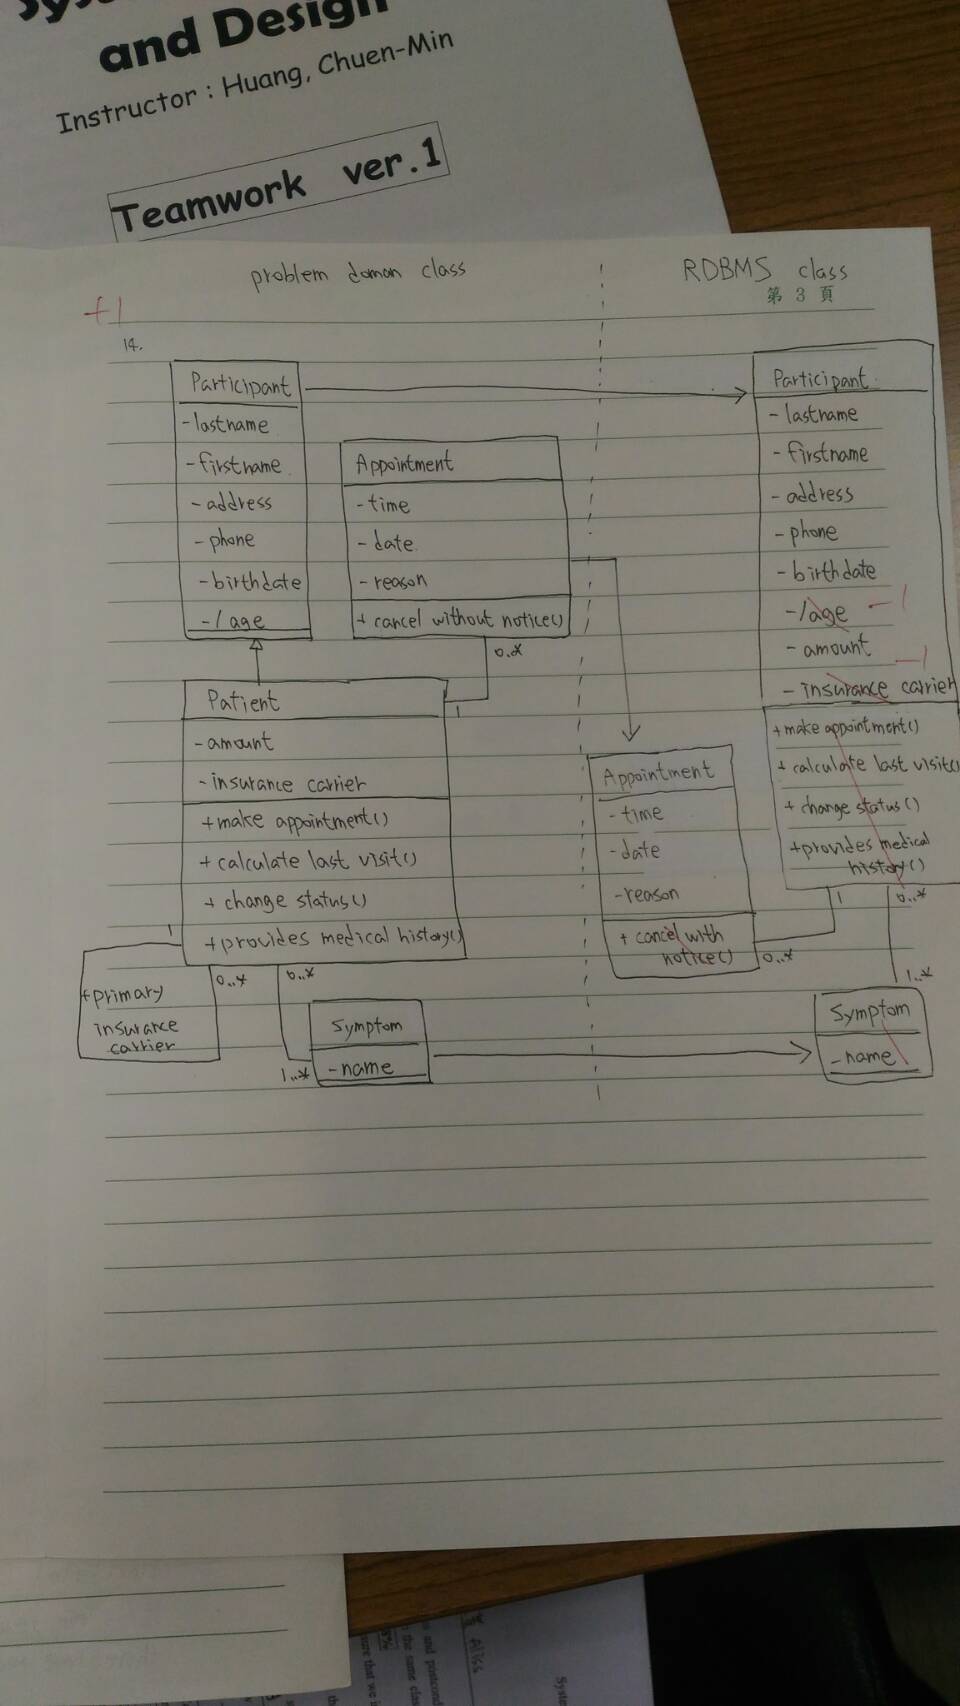 and Design
Instructor : Huang, Chuen-Min
Teamwork ver.1
problem doman class
RDBMS class
第 3 頁
+1
14.
Participant
-lastname
-firstname
-address
-phone
-birthdate
-/age
Appointment
-time
-date
-reason
+ cancel without notice()
0..*
1
Patient
-amount
-insurance carrier
+make appointment()
+calculate last visit()
+ change status()
+provides medical history()
1
+primary
insurance
carrier
0..*
0..*
1..*
Symptom
-name
Participant
-lastname
-firstname
-address
-phone
-birthdate
-/age -1
-amount
-insurance carrier -1
+make appointment()
+ calculate last visit()
+ change status()
+provides medical
history()
1
0..*
Appointment
-time
-date
-reason
+ cancel with
notice()
0..*
1..*
Symptom
-name
and postcond
the same clas
sure that we i
Aliss
Syste